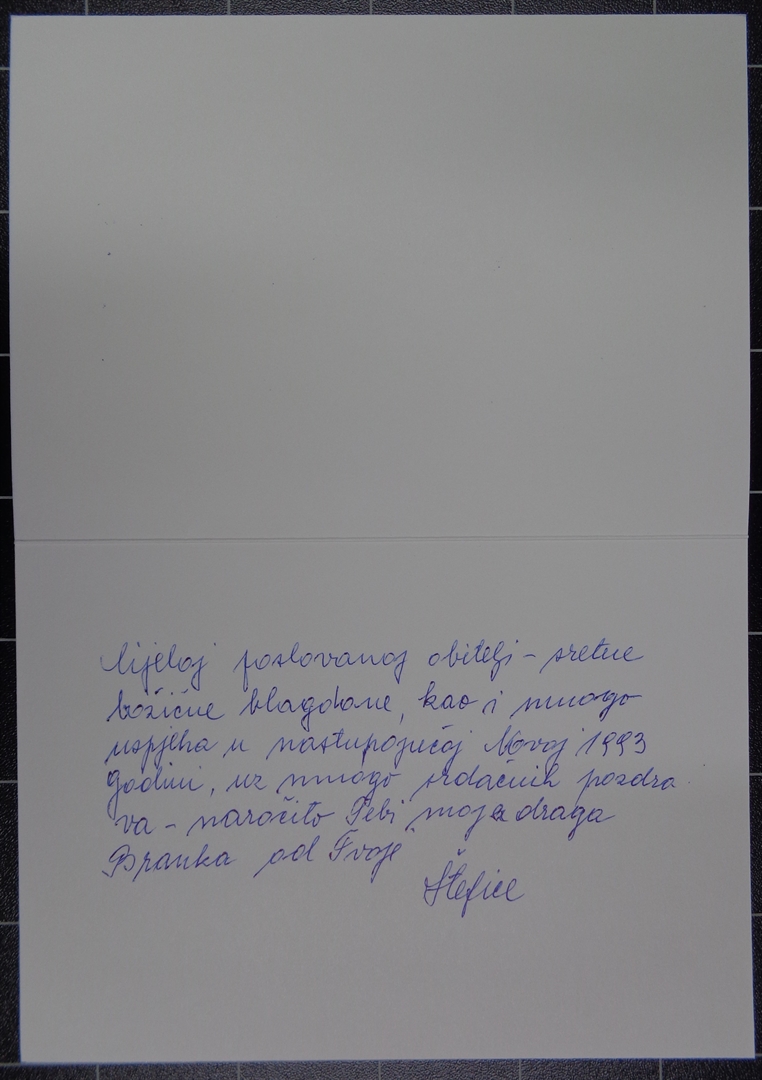 Cijeloj poslovanoj obitelji - sretne
božićne blagdane, kao i mnogo
uspjeha u nastupajućoj Novoj 1993
godini, uz mnogo srdačnih pozdra
va - naročito Tebi, moja draga
Branka od Tvoje
Štefice